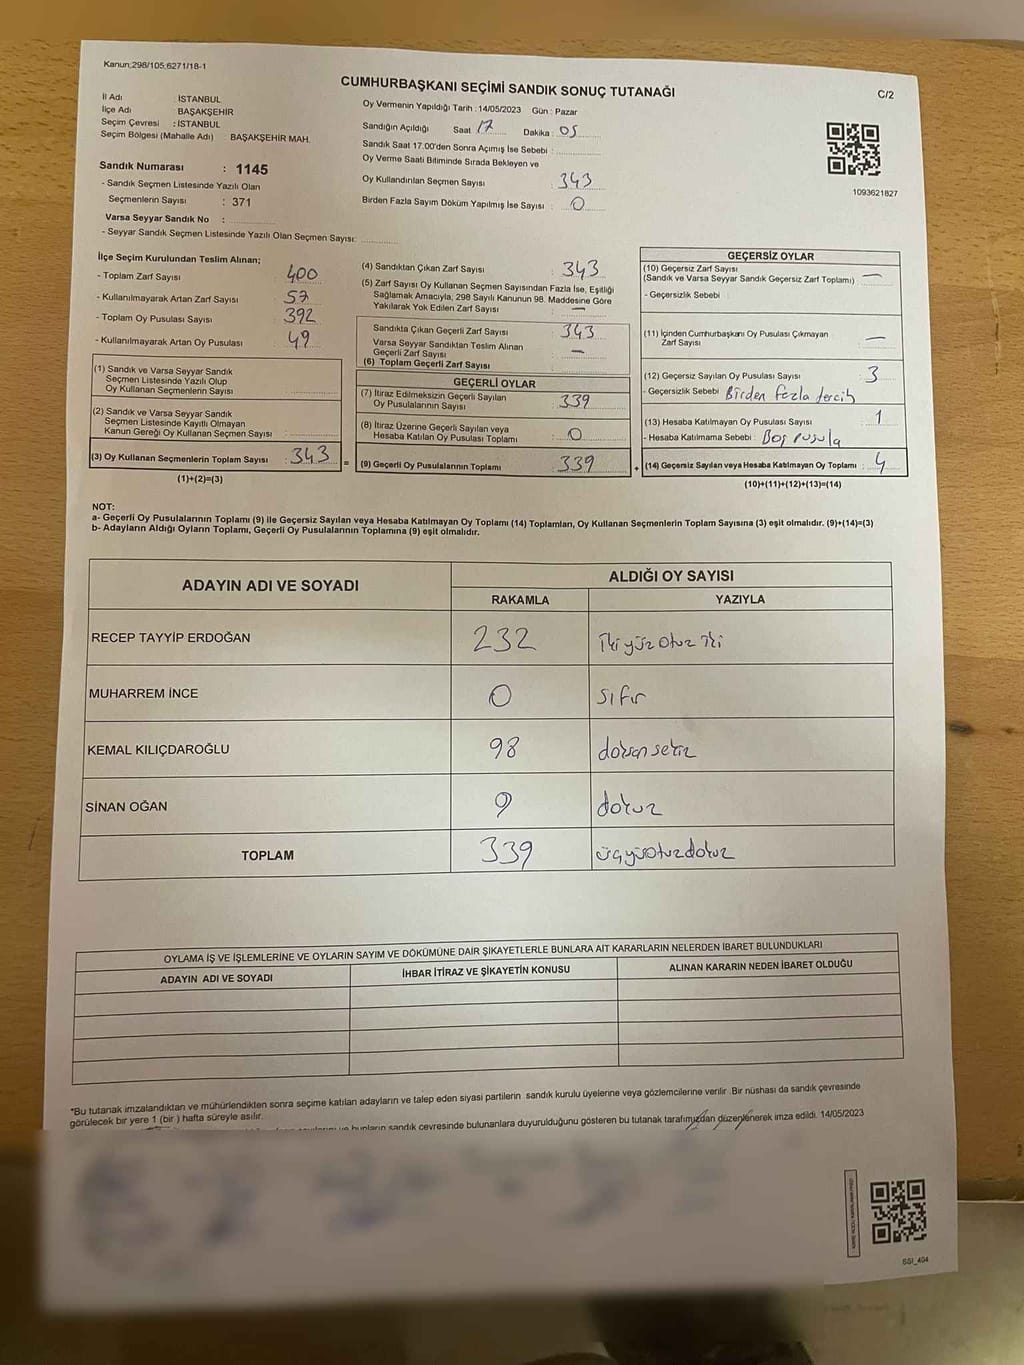 Kanun:298/105;6271/18-1
CUMHURBAŞKANI SEÇİMİ SANDIK SONUÇ TUTANAĞI
C/2
İl Adı : İSTANBUL
İlçe Adı : BAŞAKŞEHİR
Seçim Çevresi : İSTANBUL
Seçim Bölgesi (Mahalle Adı) : BAŞAKŞEHİR MAH.
Sandık Numarası : 1145
- Sandık Seçmen Listesinde Yazılı Olan
Seçmenlerin Sayısı : 371
Varsa Seyyar Sandık No :
- Seyyar Sandık Seçmen Listesinde Yazılı Olan Seçmen Sayısı:
Oy Vermenin Yapıldığı Tarih : 14/05/2023 Gün : Pazar
Sandığın Açıldığı Saat 17 Dakika : 05
Sandık Saat 17.00'den Sonra Açımış İse Sebebi :
Oy Verme Saati Bitiminde Sırada Bekleyen ve
Oy Kullandırılan Seçmen Sayısı : 343
Birden Fazla Sayım Döküm Yapılmış İse Sayısı : 0
1093621827
İlçe Seçim Kurulundan Teslim Alınan;
- Toplam Zarf Sayısı : 400
- Kullanılmayarak Artan Zarf Sayısı : 57
- Toplam Oy Pusulası Sayısı : 392
- Kullanılmayarak Artan Oy Pusulası : 49
(1) Sandık ve Varsa Seyyar Sandık
Seçmen Listesinde Yazılı Olup
Oy Kullanan Seçmenlerin Sayısı :
(2) Sandık ve Varsa Seyyar Sandık
Seçmen Listesinde Kayıtlı Olmayan
Kanun Gereği Oy Kullanan Seçmen Sayısı :
(3) Oy Kullanan Seçmenlerin Toplam Sayısı : 343
(1)+(2)=(3)
=
(4) Sandıktan Çıkan Zarf Sayısı : 343
(5) Zarf Sayısı Oy Kullanan Seçmen Sayısından Fazla İse, Eşitliği
Sağlamak Amacıyla, 298 Sayılı Kanunun 98. Maddesine Göre
Yakılarak Yok Edilen Zarf Sayısı : —
Sandıkta Çıkan Geçerli Zarf Sayısı : 343
Varsa Seyyar Sandıktan Teslim Alınan
Geçerli Zarf Sayısı : —
(6) Toplam Geçerli Zarf Sayısı :
GEÇERLİ OYLAR
(7) İtiraz Edilmeksizin Geçerli Sayılan
Oy Pusulalarının Sayısı : 339
(8) İtiraz Üzerine Geçerli Sayılan veya
Hesaba Katılan Oy Pusulası Toplamı : 0
(9) Geçerli Oy Pusulalarının Toplamı : 339
+
GEÇERSİZ OYLAR
(10) Geçersiz Zarf Sayısı
(Sandık ve Varsa Seyyar Sandık Geçersiz Zarf Toplamı) : —
- Geçersizlik Sebebi :
(11) İçinden Cumhurbaşkanı Oy Pusulası Çıkmayan
Zarf Sayısı : —
(12) Geçersiz Sayılan Oy Pusulası Sayısı : 3
- Geçersizlik Sebebi : Birden fazla tercih
(13) Hesaba Katılmayan Oy Pusulası Sayısı : 1
- Hesaba Katılmama Sebebi : Boş pusula
(14) Geçersiz Sayılan veya Hesaba Katılmayan Oy Toplamı : 4
(10)+(11)+(12)+(13)=(14)
NOT:
a- Geçerli Oy Pusulalarının Toplamı (9) ile Geçersiz Sayılan veya Hesaba Katılmayan Oy Toplamı (14) Toplamları, Oy Kullanan Seçmenlerin Toplam Sayısına (3) eşit olmalıdır. (9)+(14)=(3)
b- Adayların Aldığı Oyların Toplamı, Geçerli Oy Pusulalarının Toplamına (9) eşit olmalıdır.
ADAYIN ADI VE SOYADI
ALDIĞI OY SAYISI
RAKAMLA YAZIYLA
RECEP TAYYİP ERDOĞAN 232 İki yüz otuz iki
MUHARREM İNCE 0 sıfır
KEMAL KILIÇDAROĞLU 98 doksan sekiz
SİNAN OĞAN 9 dokuz
TOPLAM 339 üçyüzotuzdokuz
OYLAMA İŞ VE İŞLEMLERİNE VE OYLARIN SAYIM VE DÖKÜMÜNE DAİR ŞİKAYETLERLE BUNLARA AİT KARARLARIN NELERDEN İBARET BULUNDUKLARI
ADAYIN ADI VE SOYADI İHBAR İTİRAZ VE ŞİKAYETİN KONUSU ALINAN KARARIN NEDEN İBARET OLDUĞU
*Bu tutanak imzalandıktan ve mühürlendikten sonra seçime katılan adayların ve talep eden siyasi partilerin sandık kurulu üyelerine ve gözlemcilerine verilir .Bir nüshası da sandık çevresinde
görülecek bir yere 1 (bir ) hafta süreyle asılır.
ve bunların sandık çevresinde bulunanlara duyurulduğunu gösteren bu tutanak tarafımızdan düzenlenerek imza edildi. 14/05/2023
SSI_404